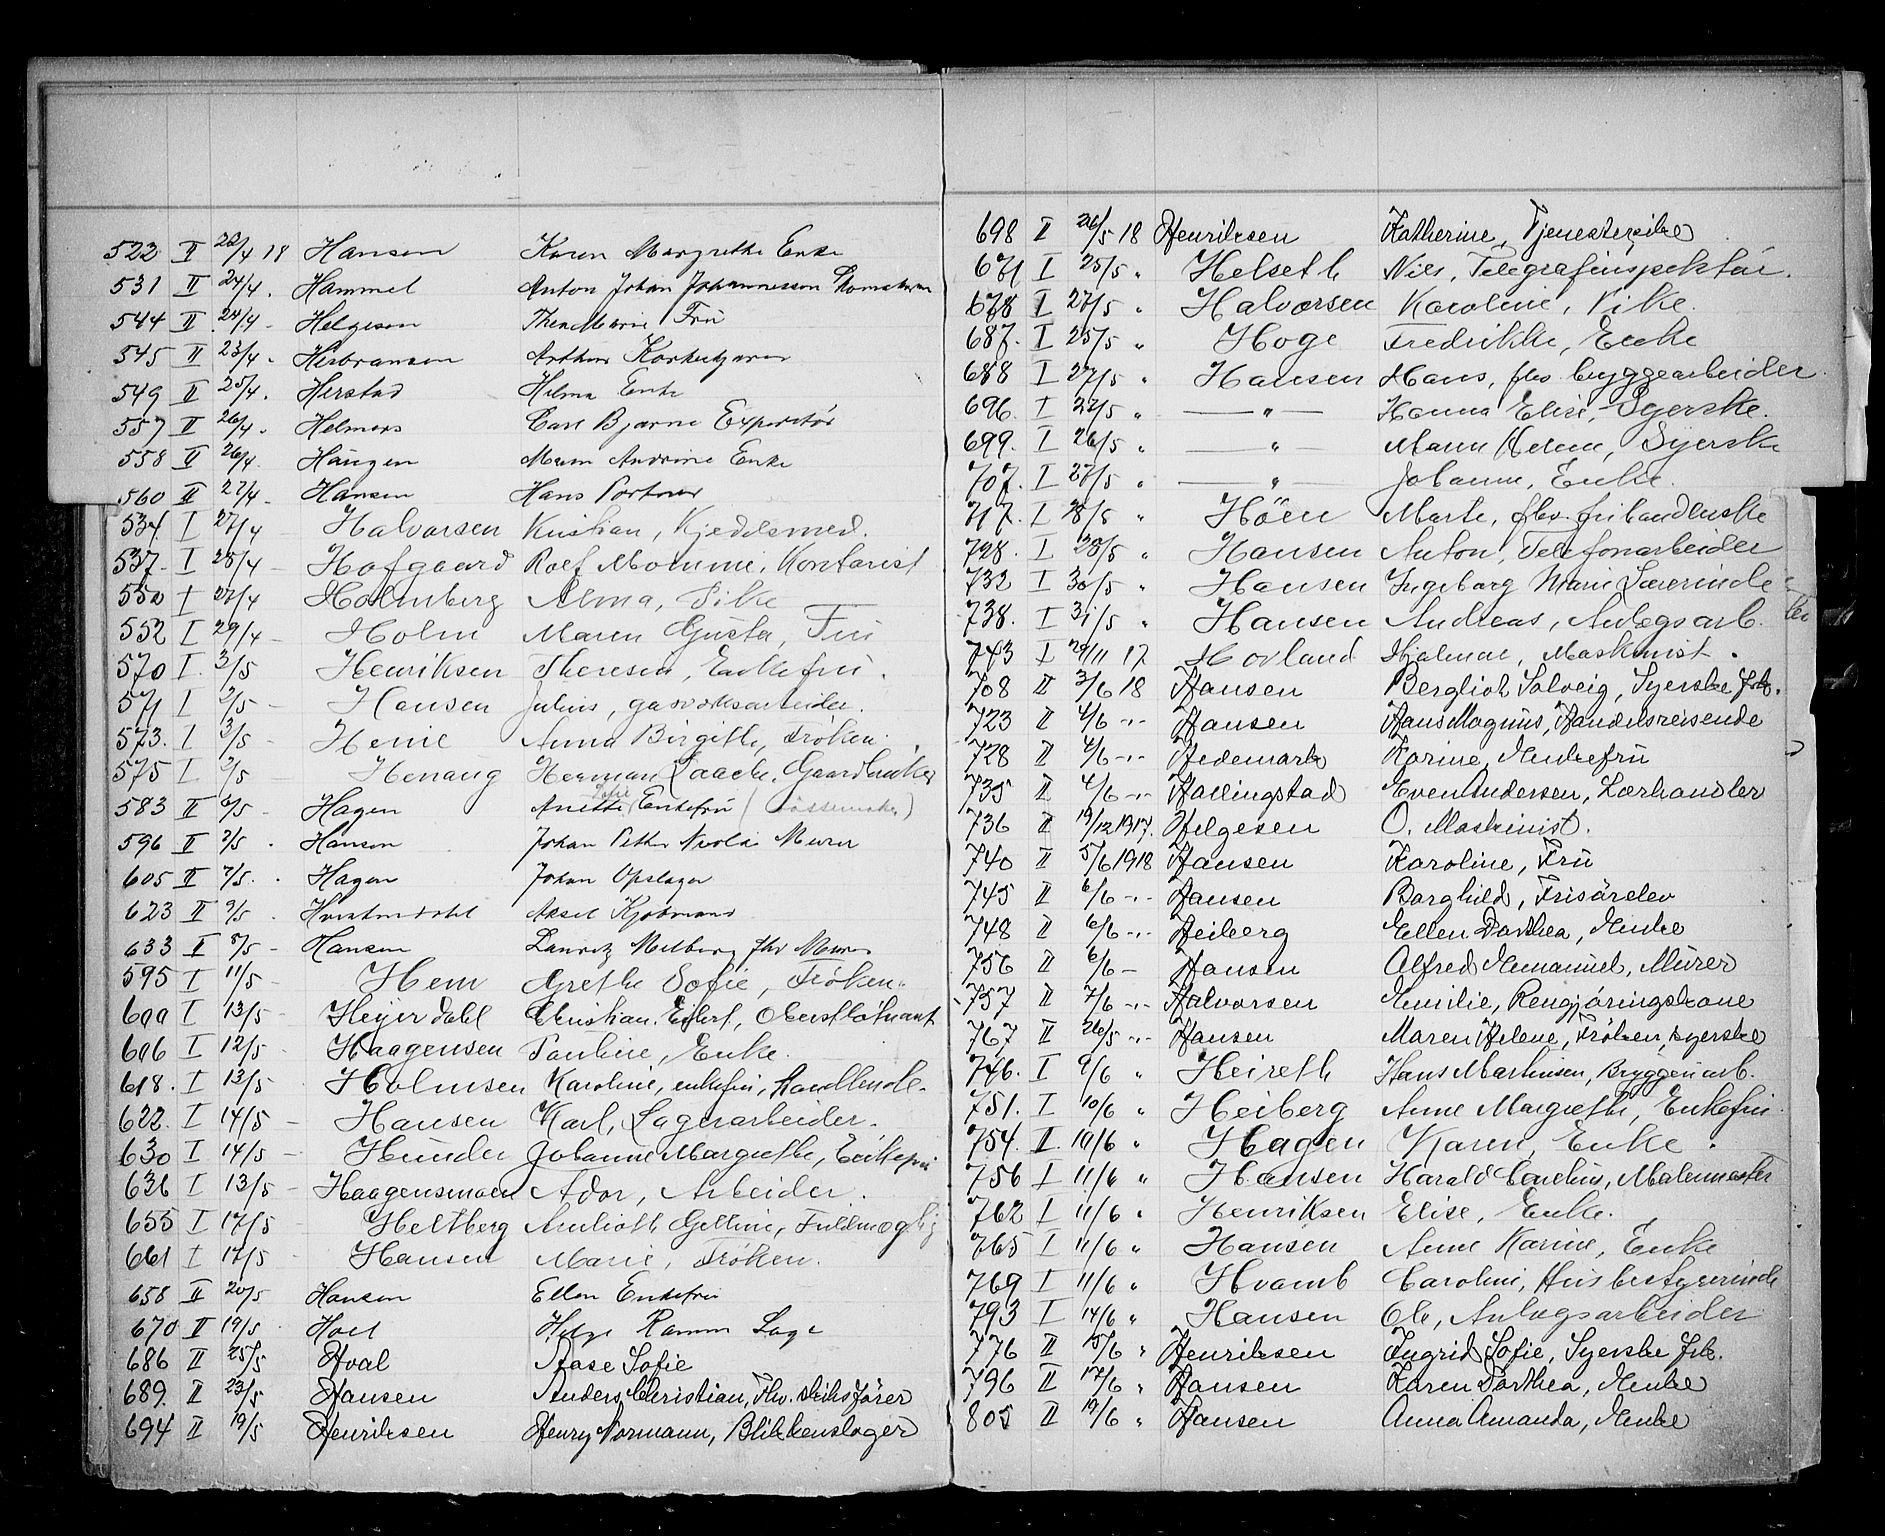 522 II 22/4 18 Hansen Karen Margrethe Enke
531 II 24/4 - Hammel Anton Johan Johannessen
544 II 24/4 - Helgesen Marie Frü
545 II 23/4 - Herbransen Arthur
549 II 25/4 - Herstad Hilma Enke
557 II 26/4 - Helmers Carl Bjarne Expeditör
558 II 26/4 Haugen Maren Andrine Enke
560 II 27/4 - Hansen Hans Portner
534 I 27/4 Halvorsen Kristian, Kjedelsmed.
537 - I 28/4 - Hofgaard Rolf Momme, Kontorist
550 I 27/4 Holmberg Alma, Pike
552 I 29/4 - Holm Maren Gusta, Frü
570 I 3/5 Henriksen Theresen, Enkefrü.
571 I 2/5 - Hansen Julius, gasværksarbeider.
573. I 3/5 - Henie Anna Birgitte, Frøken.
575 I 3/5 - Henaug Herman Laache, Gaardbruker
583 II 6/5 - Hagen Anette Sofie Enkefrü
596 II 7/5 - Hansen Johan Petter Nicolai Murer
605 II 7/5 - Hagen Johan Opslager
623 II 9/5 - Aksel Kjøbmand
633 II 8/5 - Hansen Lauritz Melberg fhv Murer
595 I 11/5 - Hem Grethe Sofie, Frøken.
600 I 13/5 - Heyerdahl Christian Eilert, Oberstløitnant
606 I 12/5 - Haagensen Pauline, Enke.
618. I 13/5 - Holmsen Karoline, enkefrü, handlende.
622. I 14/5 - Hansen Karl, Lagerarbeider.
630 I 14/5 - Hunder Johanne Margrethe, Enkefrü
636 I 13/5 - Haagensmoen Ador, Arbeider.
655 I 17/5 - Heltberg Gelline, Fuldmægtig
661 I 17/5 - Hansen Marie, Frøken.
658 II 20/5 Hansen Ellen Enkefrü
670 II 19/5 Hoel Helge Ramm Lage
686 II 25/5 Hval Aase Sofie
689. II 23/5 Hansen Anders Christian, Fhv. skibsfører
694 II 19/5 Henriksen Henry Normann, Blikkenslager
698 II 26/5 18 Henriksen Katherine, Tjenestepike
671 I 25/5 " Helseth Nils, Telegrafinspektør.
678 I 27/5 " Halvorsen Karoline, Pike.
687. I 25/5 " Hoge Fredrikke, Enke
688 I 27/5 " Hansen Hans, fhv. byggearbeider.
696. I 22/5 " — " — Hanna Elise, Syerske.
699. I 26/5 " — " — Maren Helene, Syerske
707. I 27/5 " — " — Johanne, Enke.
717. I 28/5 " Höen Marte, fhv. frihandlerske
728. I 28/5 " Hansen Anton, Telefonarbeider
732 I 30/5 " Hansen Ingeborg Marie Lærerinde
738. I 31/5 " Hansen Andreas, Anlægsarb.
743 I 29/11 17 Hovland Hjalmar, Maskinist.
708 II 3/6 18 Hansen Bergliot Solveig, Syerske Frk.
723 II 4/6 -"- Hansen Hans Magnus, Handelsreisende
728 II 4/6 -"- Hedemark Karine, Enkefrü
735 II 4/6 -"- Hallingstad Even Andersen, Lærhandler
736 II 19/12 1917. Helgesen O. Maskinist.
740 II 5/6 1918 Hansen Karoline, Frü
745 II 6/6 -"- Hansen Borghild, Frisörelev
748 II 6/6 -"- Heiberg Ellen Dorthea, Enke
756 II 6/6 - Hansen Alfred Emanuel, Murer
757 II 7/6 -"- Halvorsen Emilie, Rengjöringskone
767 II 26/5 -"- Hansen Maren Helene, Fröken, syerske
746. I 9/6 " Heireth Hans Martinsen, Bryggeriarb.
751. I 10/6 " Heiberg Anne Margrethe, Enkefrü.
754. II 10/6 " Hagen Karen, Enke.
756 I 11/6 " Hansen Harald Cornelius, Malermester
762 I 11/6 " Henriksen Elise, Enke.
765 I 11/6 " Hansen Anne Karine, Enke
769 I 11/6 " Hvamb Caroline, Husbestyrerinde
793 I 14/6 " Hansen Ole, Anlægsarbeider
776 II 15/6 " Henriksen Ingrid Sofie, Syerske Frk.
796 II 17/6 " Hansen Karen Dorthea, Enke
805 II 19/6 " Hansen Anna Amanda, Enke